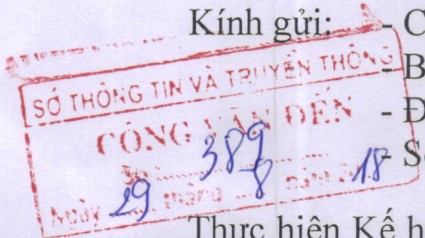 Kính gửi: - C
- B
SỞ THÔNG TIN VÀ TRUYỀN THÔNG
CÔNG VĂN ĐẾN
- Đ
389
- S
Ngày 29 tháng 8 năm 2018
Thực hiện Kế h